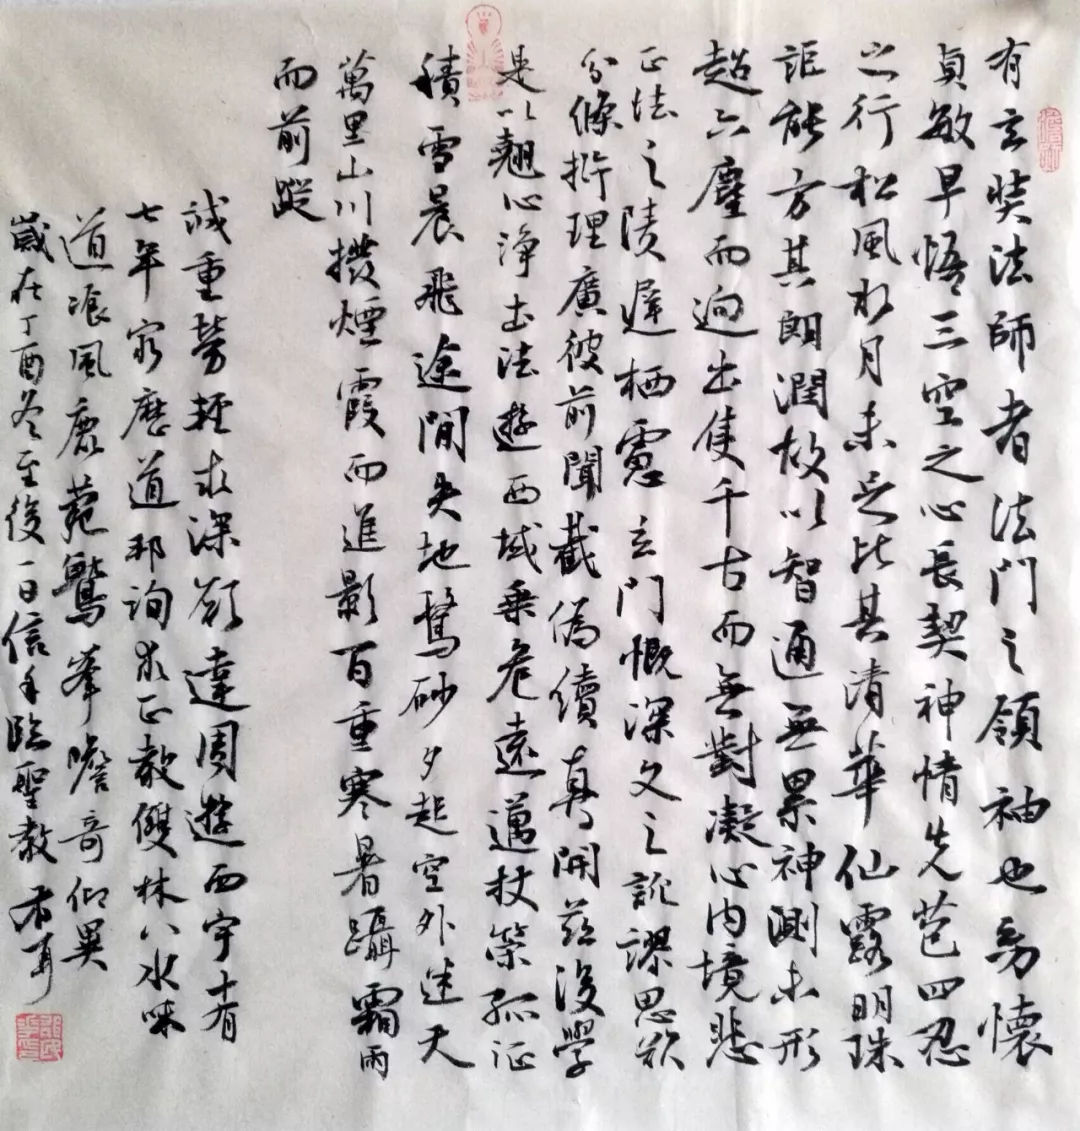 有玄奘法師者法門之領袖也幼懷
貞敏早悟三空之心長契神情先苞四忍
之行松風水月未足比其清華仙露明珠
詎能方其朗潤故以智通無累神測未形
超六塵而迥出隻千古而無對凝心內境悲
正法之陵遲栖慮玄門慨深文之訛謬思欲
分條析理廣彼前聞截偽續真開茲後學
是以翹心淨土法遊西域乘危遠邁杖策孤征
積雪晨飛途閒失地驚砂夕起空外迷天
萬里山川撥煙霞而進影百重寒暑躡霜雨
而前蹤
誠重勞輕求深願達周遊西宇十有
七年窮歷道邦詢求正教雙林八水味
道飡風鹿菀鷲峯瞻奇仰異
歲在丁酉冬至後一日信手臨聖教